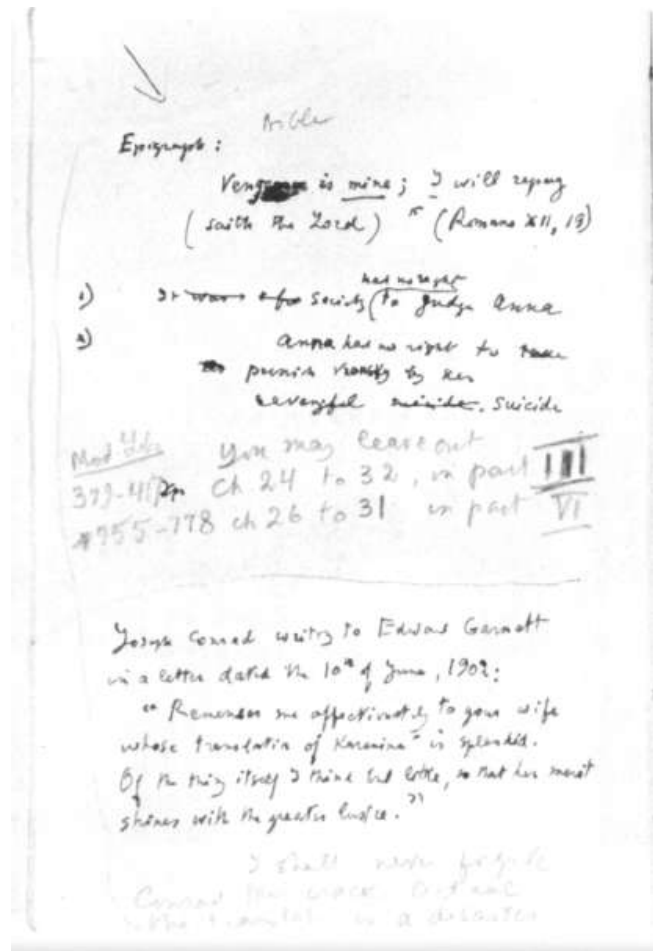 Bible
Epigraph:
Vengeance is mine; I will repay
(saith the Lord) " (Romans XII, 19)
has no right
1) It was Society (to judge Anna
2) Anna has no right to
punish Vronsky by her
revengful suicide. Suicide
Mod Lib. You may leave out
379-417 pp ch 24 to 32, in part III
755-778 ch 26 to 31 in part VI
Joseph Conrad writing to Edward Garnett
in a letter dated the 10th of June, 1902:
"Remember me affectionately to your wife
whose translation of Karenina" is splendid.
Of the thing itself I think but little, so that her merit
shines with the greater lustre."
I shall never forgive
Conrad this crack.
the is a disaster